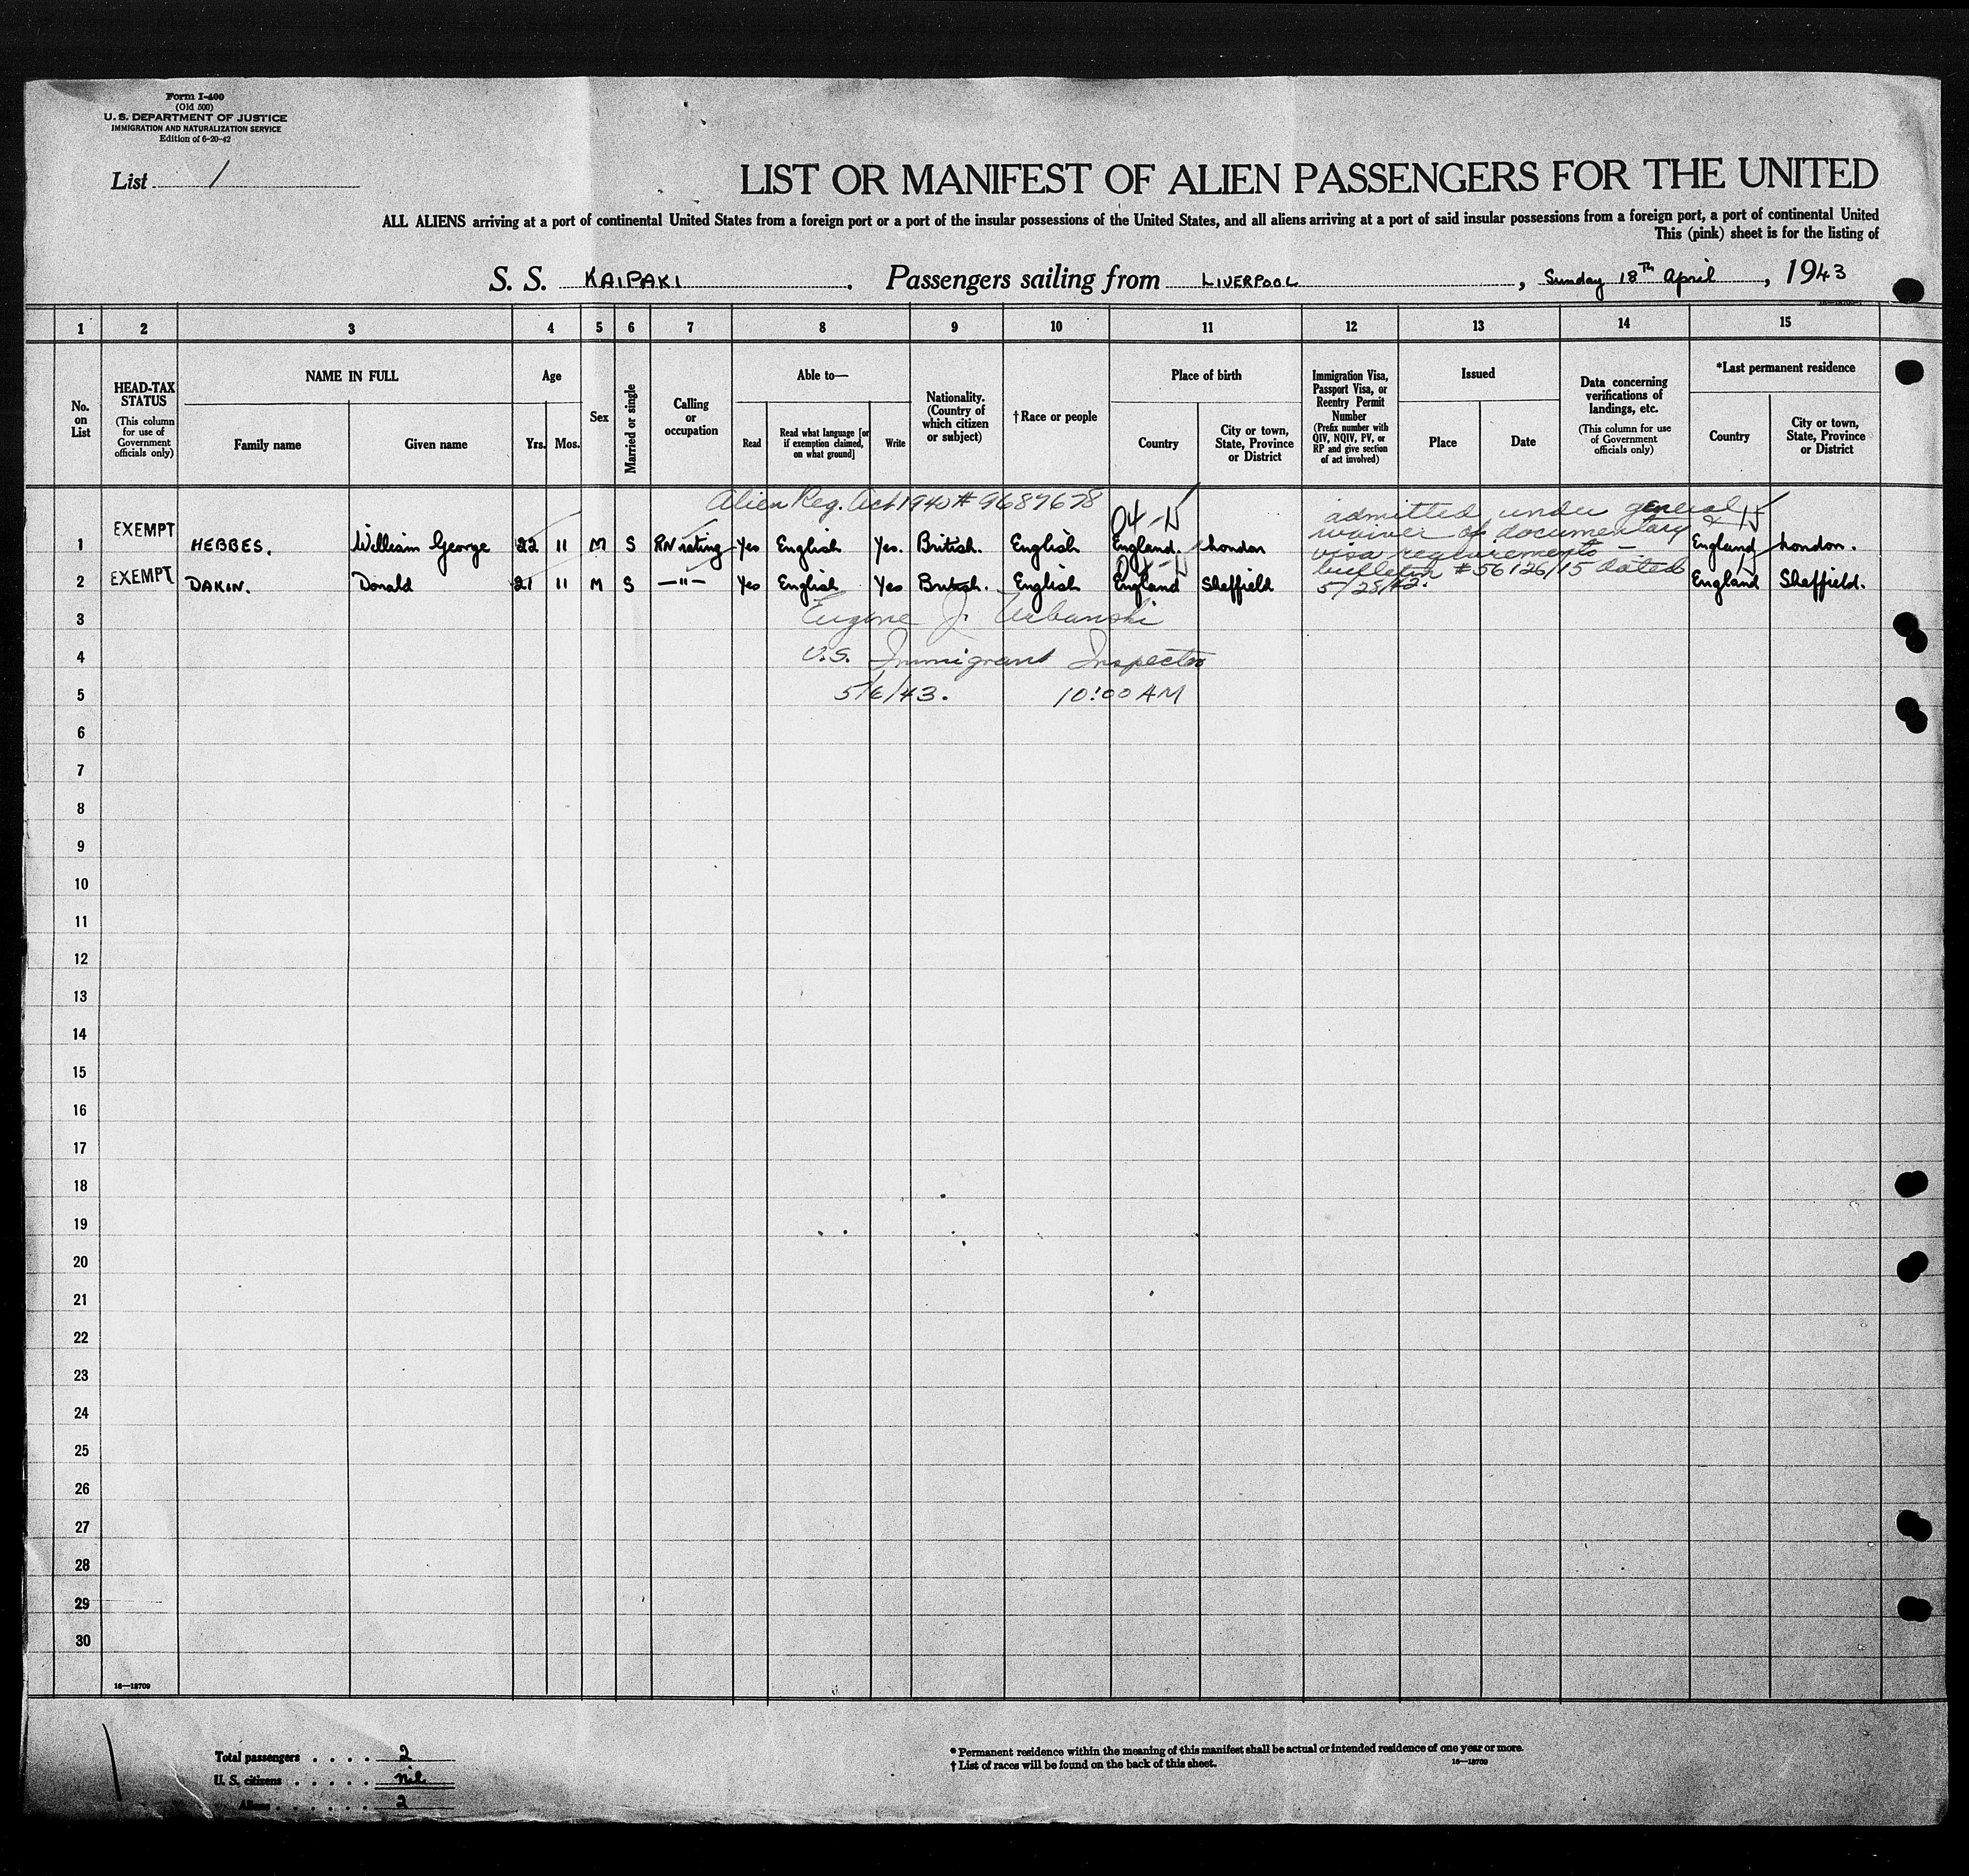 Form I-400
(Old 500)
U. S. DEPARTMENT OF JUSTICE
IMMIGRATION AND NATURALIZATION SERVICE
Edition of 6-20-42
List 1
LIST OR MANIFEST OF ALIEN PASSENGERS FOR THE UNITED
ALL ALIENS arriving at a port of continental United States from a foreign port or a port of the insular possessions of the United States, and all aliens arriving at a port of said insular possessions from a foreign port, a port of continental United
This (pink) sheet is for the listing of
S. S. KAIPAKI . Passengers sailing from LIVERPOOL , Sunday 18Th April , 1943
1 2 3 4 5 6 7 8 9 10 11 12 13 14 15
No. on List
HEAD-TAX STATUS (This column for use of Government officials only)
NAME IN FULL
Family name Given name
Age
Yrs. Mos.
Sex
Married or single
Calling or occupation
Able to—
Read Read what language [or if exemption claimed, on what ground] Write
Nationality. (Country of which citizen or subject)
† Race or people
Place of birth
Country City or town, State, Province or District
Immigration Visa, Passport Visa, or Reentry Permit Number (Prefix number with QIV, NQIV, PV, or RP and give section of act involved)
Issued
Place Date
Data concerning verifications of landings, etc. (This column for use of Government officials only)
*Last permanent residence
Country City or town, State, Province or District
Alien Reg. Act 1940 # 9687678
admitted under general
waiver of documentary &
visa requirements —
bulletin # 56126/15 dated
5/28/42.
1 EXEMPT HEBBES. William George 22 11 M S RN rating Yes English Yes. British. English England. London England London.
2 EXEMPT DAKIN. Donald 21 11 M S —"— Yes English Yes British. English England Sheffield England Sheffield.
3 Eugene J. Urbanski
4 U.S. Immigrant Inspector
5 5/6/43. 10:00 AM
6
7
8
9
10
11
12
13
14
15
16
17
18
19
20
21
22
23
24
25
26
27
28
29
30
16—18709
Total passengers . . . . 2
U. S. citizens . . . . . nil
Aliens . . . . . . 2
* Permanent residence within the meaning of this manifest shall be actual or intended residence of one year or more.
† List of races will be found on the back of this sheet.
16—18709